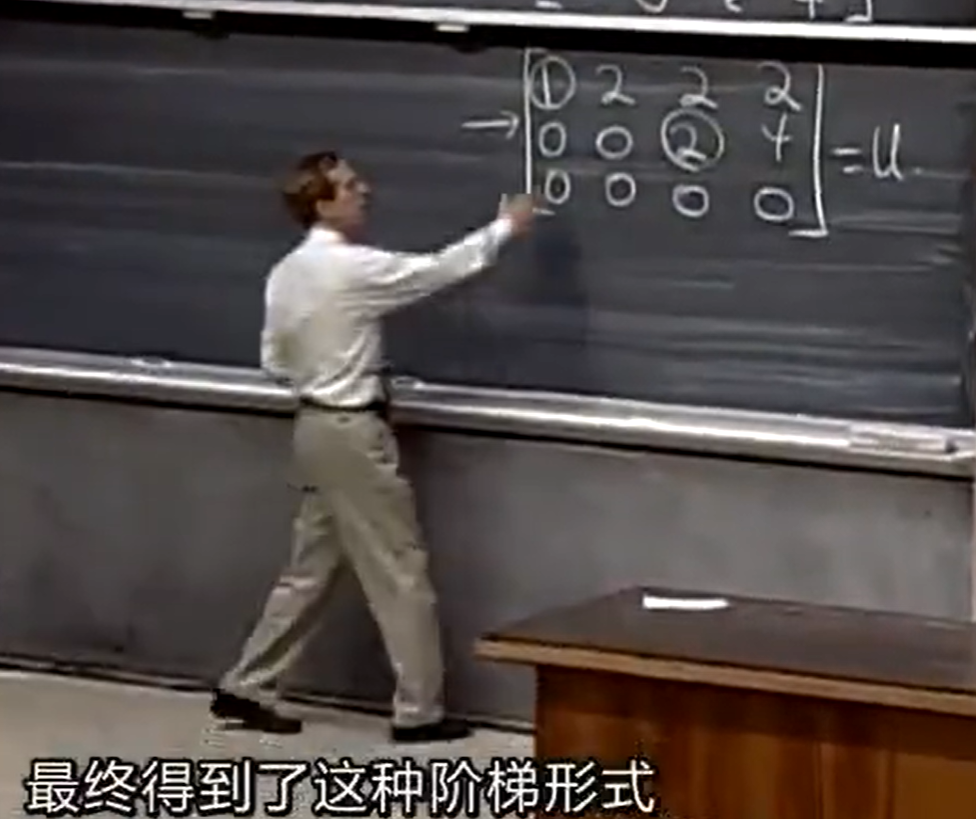 1 2 2 2
→ 0 0 2 4 = U
0 0 0 0
最终得到了这种阶梯形式